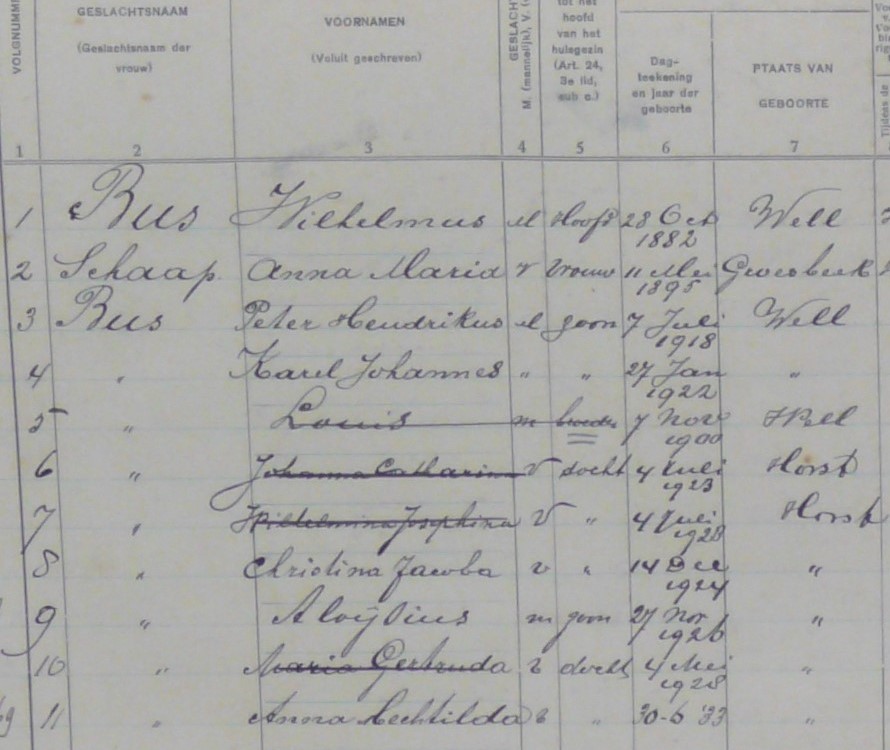 VOLGNUMM
GESLACHTSNAAM
(Geslachtsnaam der
vrouw)
VOORNAMEN
(Voluit geschreven)
GESLACH
M. (mannelijk), V. (
tot het
hoofd
van het
huisgezin
(Art. 24,
3e lid,
sub c.)
Dag-
teekening
en jaar der
geboorte
PTAATS VAN
GEBOORTE
Tijdens de
1 2 3 4 5 6 7
1 Bus Wilhelmus M Hoofd 28 Oct 1882 Well
2 Schaap. Anna Maria v Vrouw 11 Mei 1895
3 Bus Peter Hendrikus M zoon 7 Juli 1918 Well
4 " Karel Johannes " " 27 Jan 1922 "
5 " Louis m broeder 7 Nov 1900 Well
6 " Johanna Catharina V docht 4 Juli 1923 Horst
7 " Wilhelmina Josephina V " 4 Juli 1928 Horst
8 " Christina Jacoba v " 14 Dec 1924 "
9 " Aloÿsius m zoon 27 Nov 1926 "
10 " Maria Gertruda v docht 4 Mei 1928 "
11 " Anna Mechtilda v " 30-6 '33 "